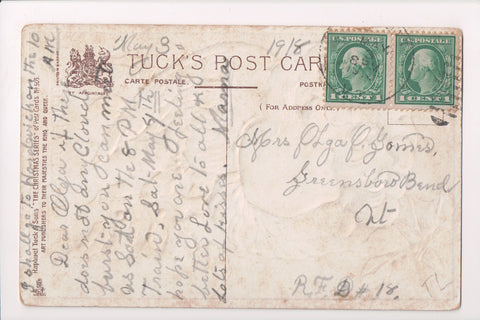 May 3 1918
TUCK'S POST CARD
CARTE POSTALE.
(FOR ADDRESS ONLY.)
U.S. POSTAGE
1 CENT 1
U.S. POSTAGE
1 CENT 1
Mrs Olga C. Gomes,
Greensboro Bend
Vt
R.F.D #18.
Dear Olga if there
does not any Clouds
burst you can meet
us Sat on the 8 P.M
Train, Sat. May 4th
hope you are feeling
better Love to all +
Lots of kisses. Mama
I shall go to Hardwick on the 10
A M
Raphael Tuck & Sons' "THE CHRISTMAS SERIES" of Post Cards
ART PUBLISHERS TO THEIR MAJESTIES THE KING AND QUEEN.
TL